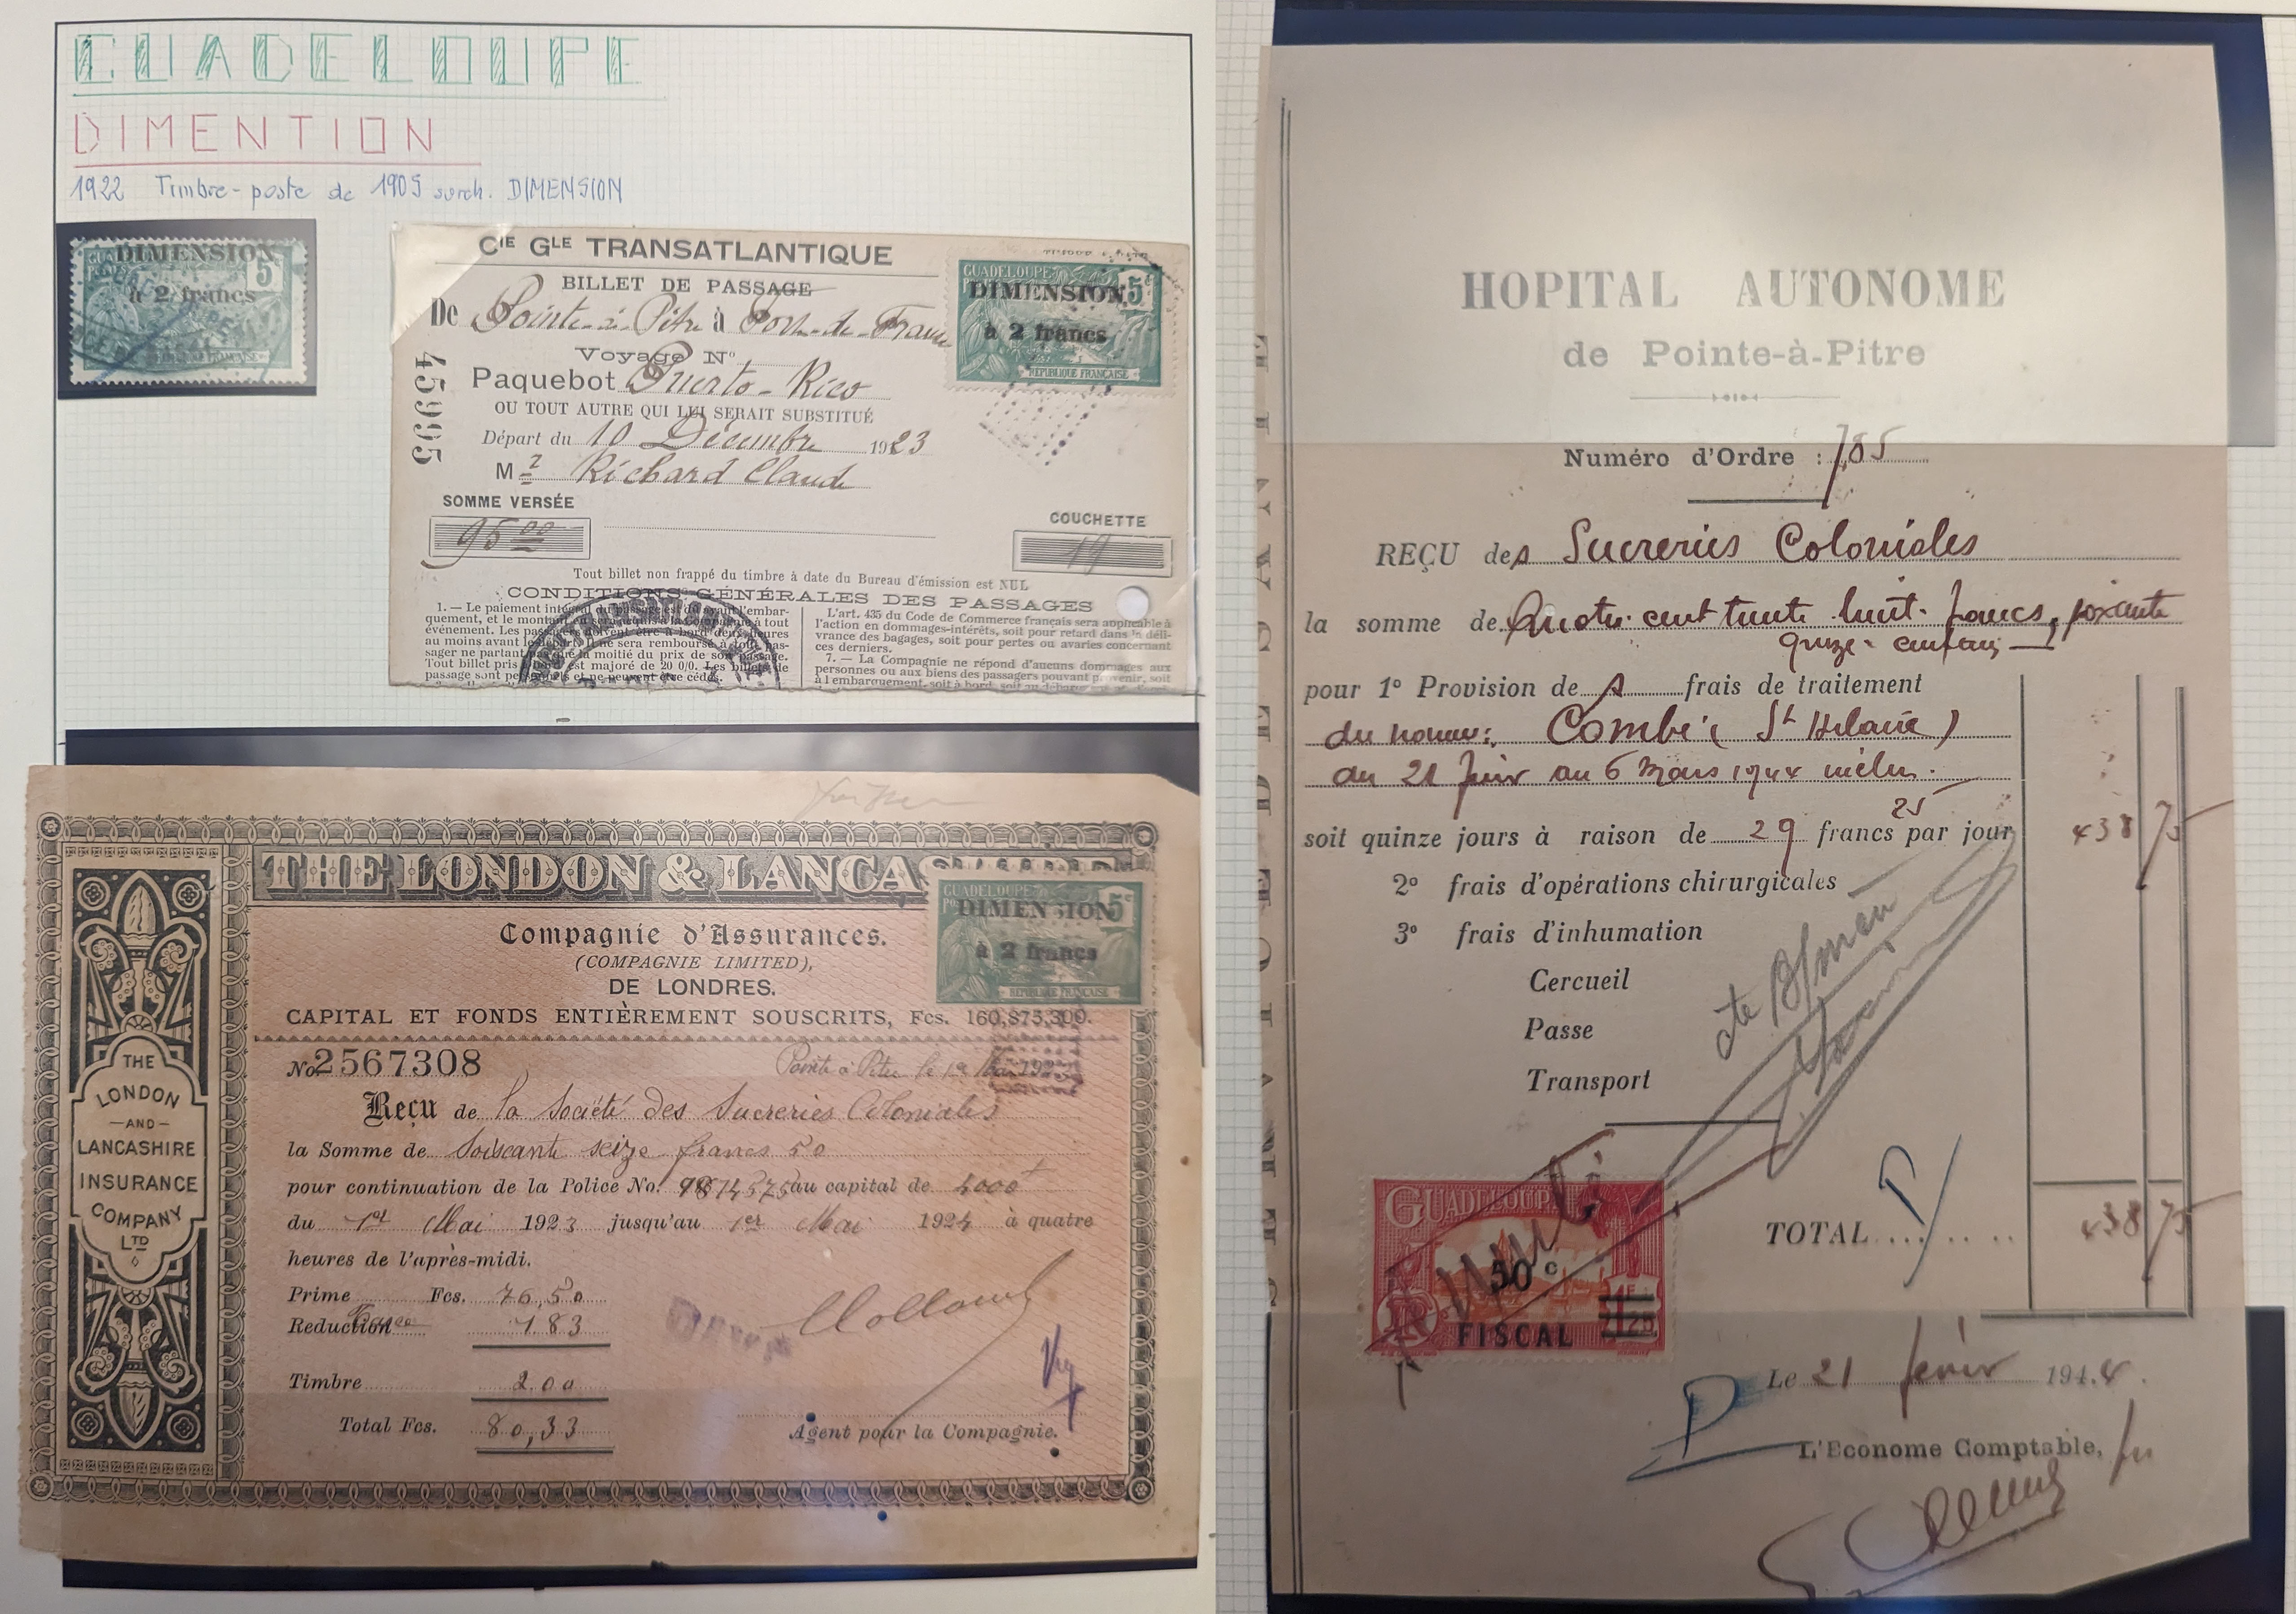 GUADELOUPE
DIMENTION
1922 Timbre-poste de 1905 surch. DIMENSION
DIMENSION
5c
à 2 francs
CIE GLE TRANSATLANTIQUE
BILLET DE PASSAGE
De Pointe-à-Pitre à Fort-de-France
Voyage No
Paquebot Puerto-Rico
OU TOUT AUTRE QUI LUI SERAIT SUBSTITUÉ
Départ du 10 Décembre 1923
Mr Richard Claude
45995
SOMME VERSÉE
95 00
COUCHETTE
19
GUADELOUPE
DIMENSION
5c
à 2 francs
RÉPUBLIQUE FRANÇAISE
Tout billet non frappé du timbre à date du Bureau d'émission est NUL
CONDITIONS GÉNÉRALES DES PASSAGES
1. — Le paiement intégral du passage est dû avant l'embar-
quement, et le montant en sera acquis à la Compagnie à tout
événement. Les passagers doivent être à bord deux heures
au moins avant le départ. Il ne sera remboursé à tout pas-
sager ne partant pas que la moitié du prix de son passage.
Tout billet pris à bord est majoré de 20 0/0. Les billets de
passage sont personnels et ne peuvent être cédés.
L'art. 435 du Code de Commerce français sera applicable à
l'action en dommages-intérêts, soit pour retard dans la déli-
vrance des bagages, soit pour pertes ou avaries concernant
ces derniers.
7. — La Compagnie ne répond d'aucuns dommages aux
personnes ou aux biens des passagers pouvant provenir, soit
à l'embarquement, soit à bord, soit au
THE LONDON & LANCA
GUADELOUPE
DIMENSION
5c
à 2 francs
RÉPUBLIQUE FRANÇAISE
Compagnie d'Assurances.
(COMPAGNIE LIMITED),
DE LONDRES.
CAPITAL ET FONDS ENTIÈREMENT SOUSCRITS, Fcs. 160,875,300.
No. 2567308
Pointe à Pitre le 1er Mai 1923
Reçu de la Société des Sucreries Coloniales
la Somme de Soixante seize francs 50
pour continuation de la Police No. 9874575 au capital de 4000
du 1er Mai 1923 jusqu'au 1er Mai 1924 à quatre
heures de l'après-midi.
Prime Fcs. 76,50
Reduction Taxe 1 83
Timbre 2.00
Total Fcs. 80,33
Agent pour la Compagnie.
THE
LONDON
—AND—
LANCASHIRE
INSURANCE
COMPANY
LTD
HOPITAL AUTONOME
de Pointe-à-Pitre
Numéro d'Ordre : 785
REÇU des Sucreries Coloniales
la somme de Quatre cent trente huit francs, soixante
quinze centimes
pour 1o Provision de frais de traitement
du nommé: Combé (St Hilaire)
du 21 févr au 6 Mars 1944 inclus.
soit quinze jours à raison de 29 25 francs par jour 438 75
2o frais d'opérations chirurgicales
3o frais d'inhumation
Cercueil
Passe
Transport
TOTAL........ 438 75
GUADELOUPE
50 c
1F 25
RF
FISCAL
Le 21 févr 1944.
L'Econome Comptable,